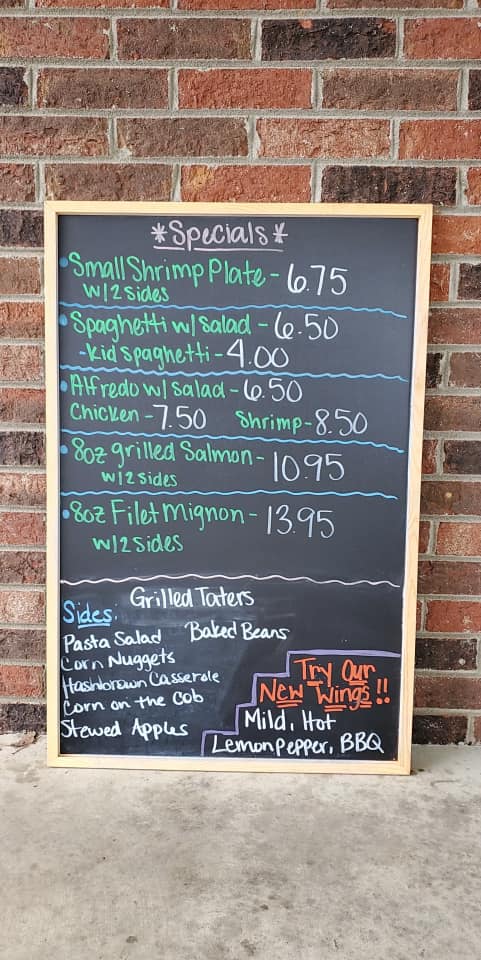 *Specials*
•Small Shrimp Plate - 6.75
w/2 sides
•Spaghetti w/ salad - 6.50
-kid spaghetti - 4.00
•Alfredo w/ salad - 6.50
Chicken - 7.50 Shrimp - 8.50
•8oz grilled Salmon - 10.95
w/2 sides
•8oz Filet Mignon - 13.95
w/2 sides
Sides: Grilled Taters
Pasta Salad Baked Beans
Corn Nuggets
Hashbrown Casserole
Corn on the Cob
Stewed Apples
Try Our
New Wings!!
Mild, Hot
Lemonpepper, BBQ